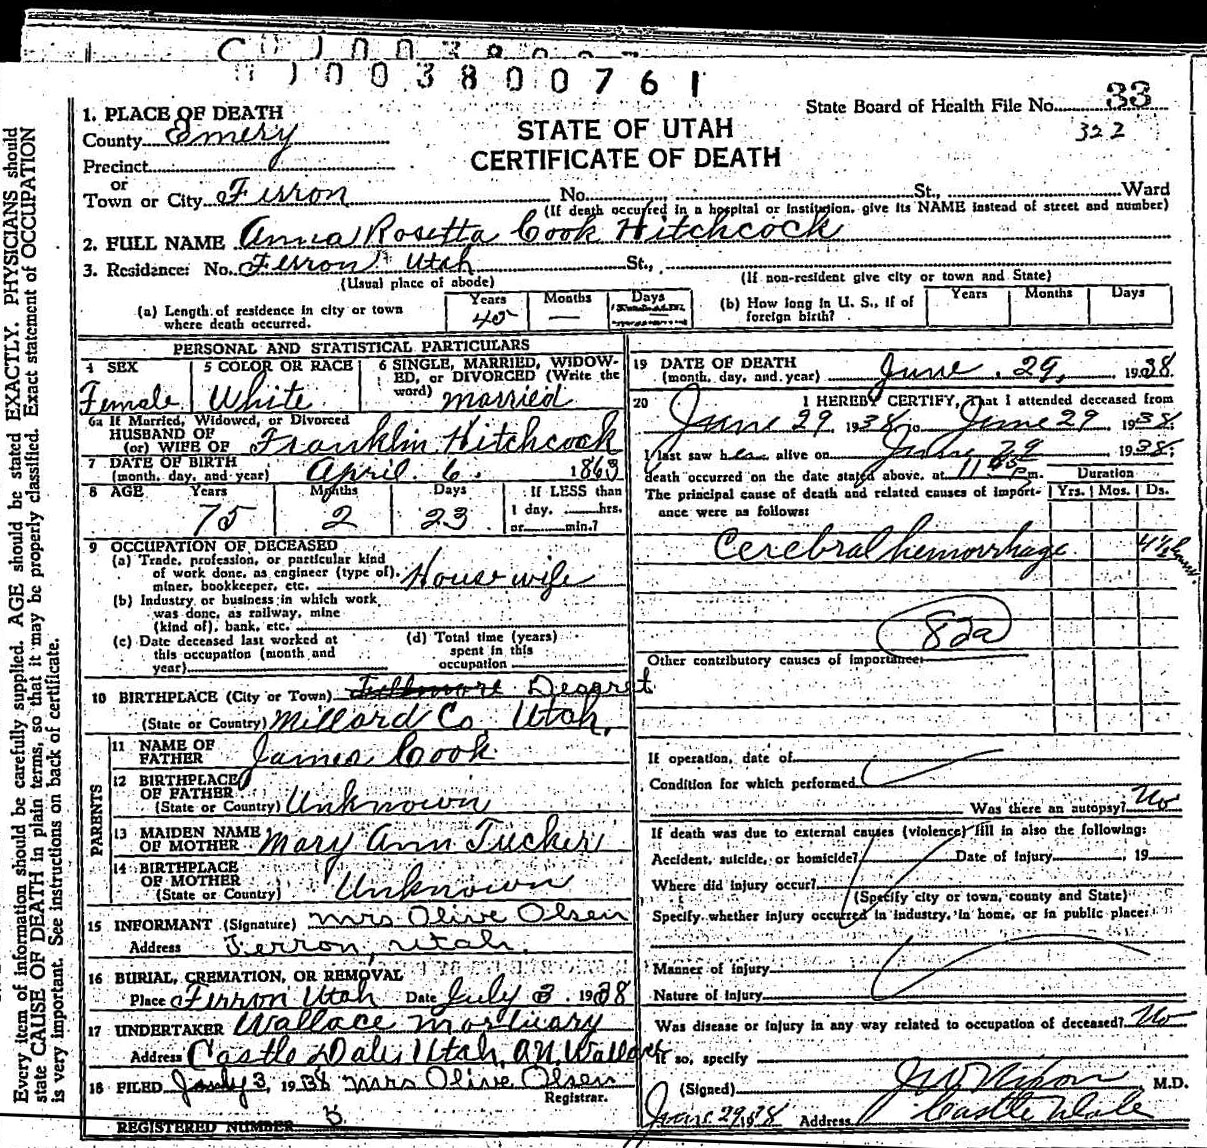 1003800761
State Board of Health File No. 33
322
STATE OF UTAH
CERTIFICATE OF DEATH
1. PLACE OF DEATH
County Emery
Precinct
or
Town or City Ferron No. St., Ward
(If death occurred in a hospital or institution, give its NAME instead of street and number)
2. FULL NAME Anna Rosetta Cook Hitchcock
3. Residence: No. Ferron Utah St.,
(Usual place of abode) (If non-resident give city or town and State)
(a) Length of residence in city or town where death occurred. Years 45 Months — Days
(b) How long in U. S., if of foreign birth? Years Months Days
PERSONAL AND STATISTICAL PARTICULARS
4 SEX Female
5 COLOR OR RACE White
6 SINGLE, MARRIED, WIDOWED, or DIVORCED (Write the word) married
6a If Married, Widowed, or Divorced
HUSBAND OF
(or) WIFE OF Franklin Hitchcock
7 DATE OF BIRTH
(month, day, and year) April 6. 1863
8 AGE Years 75 Months 2 Days 23 If LESS than 1 day, hrs. or min.?
9 OCCUPATION OF DECEASED
(a) Trade, profession, or particular kind
of work done, as engineer (type of),
miner, bookkeeper, etc. Housewife
(b) Industry or business in which work
was done, as railway, mine
(kind of), bank, etc.
(c) Date deceased last worked at
this occupation (month and
year)
(d) Total time (years)
spent in this
occupation
10 BIRTHPLACE (City or Town) Fillmore Deseret
(State or Country) Millard Co Utah.
PARENTS
11 NAME OF
FATHER James Cook
12 BIRTHPLACE
OF FATHER
(State or Country) Unknown
13 MAIDEN NAME
OF MOTHER Mary Ann Tucker
14 BIRTHPLACE
OF MOTHER
(State or Country) Unknown
15 INFORMANT (Signature) Mrs Olive Olsen
Address Ferron, Utah.
16 BURIAL, CREMATION, OR REMOVAL
Place Ferron Utah Date July 3. 1938
17 UNDERTAKER Wallace Mortuary
Address Castle Dale, Utah, A.N. Wallace
18 FILED July 3, 1938 Mrs Olive Olsen
Registrar.
REGISTERED NUMBER 5
19 DATE OF DEATH
(month, day, and year) June. 29, 1938
20 I HEREBY CERTIFY, That I attended deceased from
June 29 1938 to June 29 1938.
I last saw her alive on June 29 1938;
death occurred on the date stated above, at m.
Duration
The principal cause of death and related causes of importance were as follows:
Yrs. Mos. Ds.
Cerebral hemorrhage
82a
Other contributory causes of importance:
If operation, date of
Condition for which performed
Was there an autopsy? No
If death was due to external causes (violence) fill in also the following:
Accident, suicide, or homicide? Date of injury , 19
Where did injury occur?
(Specify city or town, county and State)
Specify whether injury occurred in industry, in home, or in public place:
Manner of injury
Nature of injury
Was disease or injury in any way related to occupation of deceased? No
If so, specify
(Signed) J W Nixon M.D.
June 29 38 Address Castle Dale
Every item of information should be carefully supplied. AGE should be stated EXACTLY. PHYSICIANS should
state CAUSE OF DEATH in plain terms, so that it may be properly classified. Exact statement of OCCUPATION
is very important. See instructions on back of certificate.